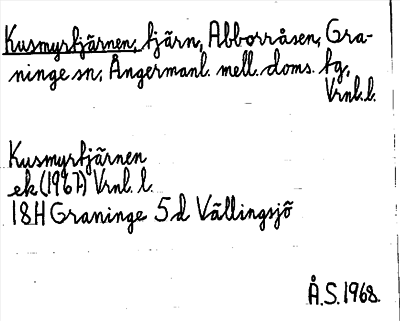 Kusmyrtjärnen, tjärn, Abborråsen, Gra-
ninge sn, Ångermanl. mell. doms. tg,
Vrnl. l.
Kusmyrtjärnen
ek (1967) Vrnl. l.
18H Graninge 5d Vällingsjö
Å.S. 1968.